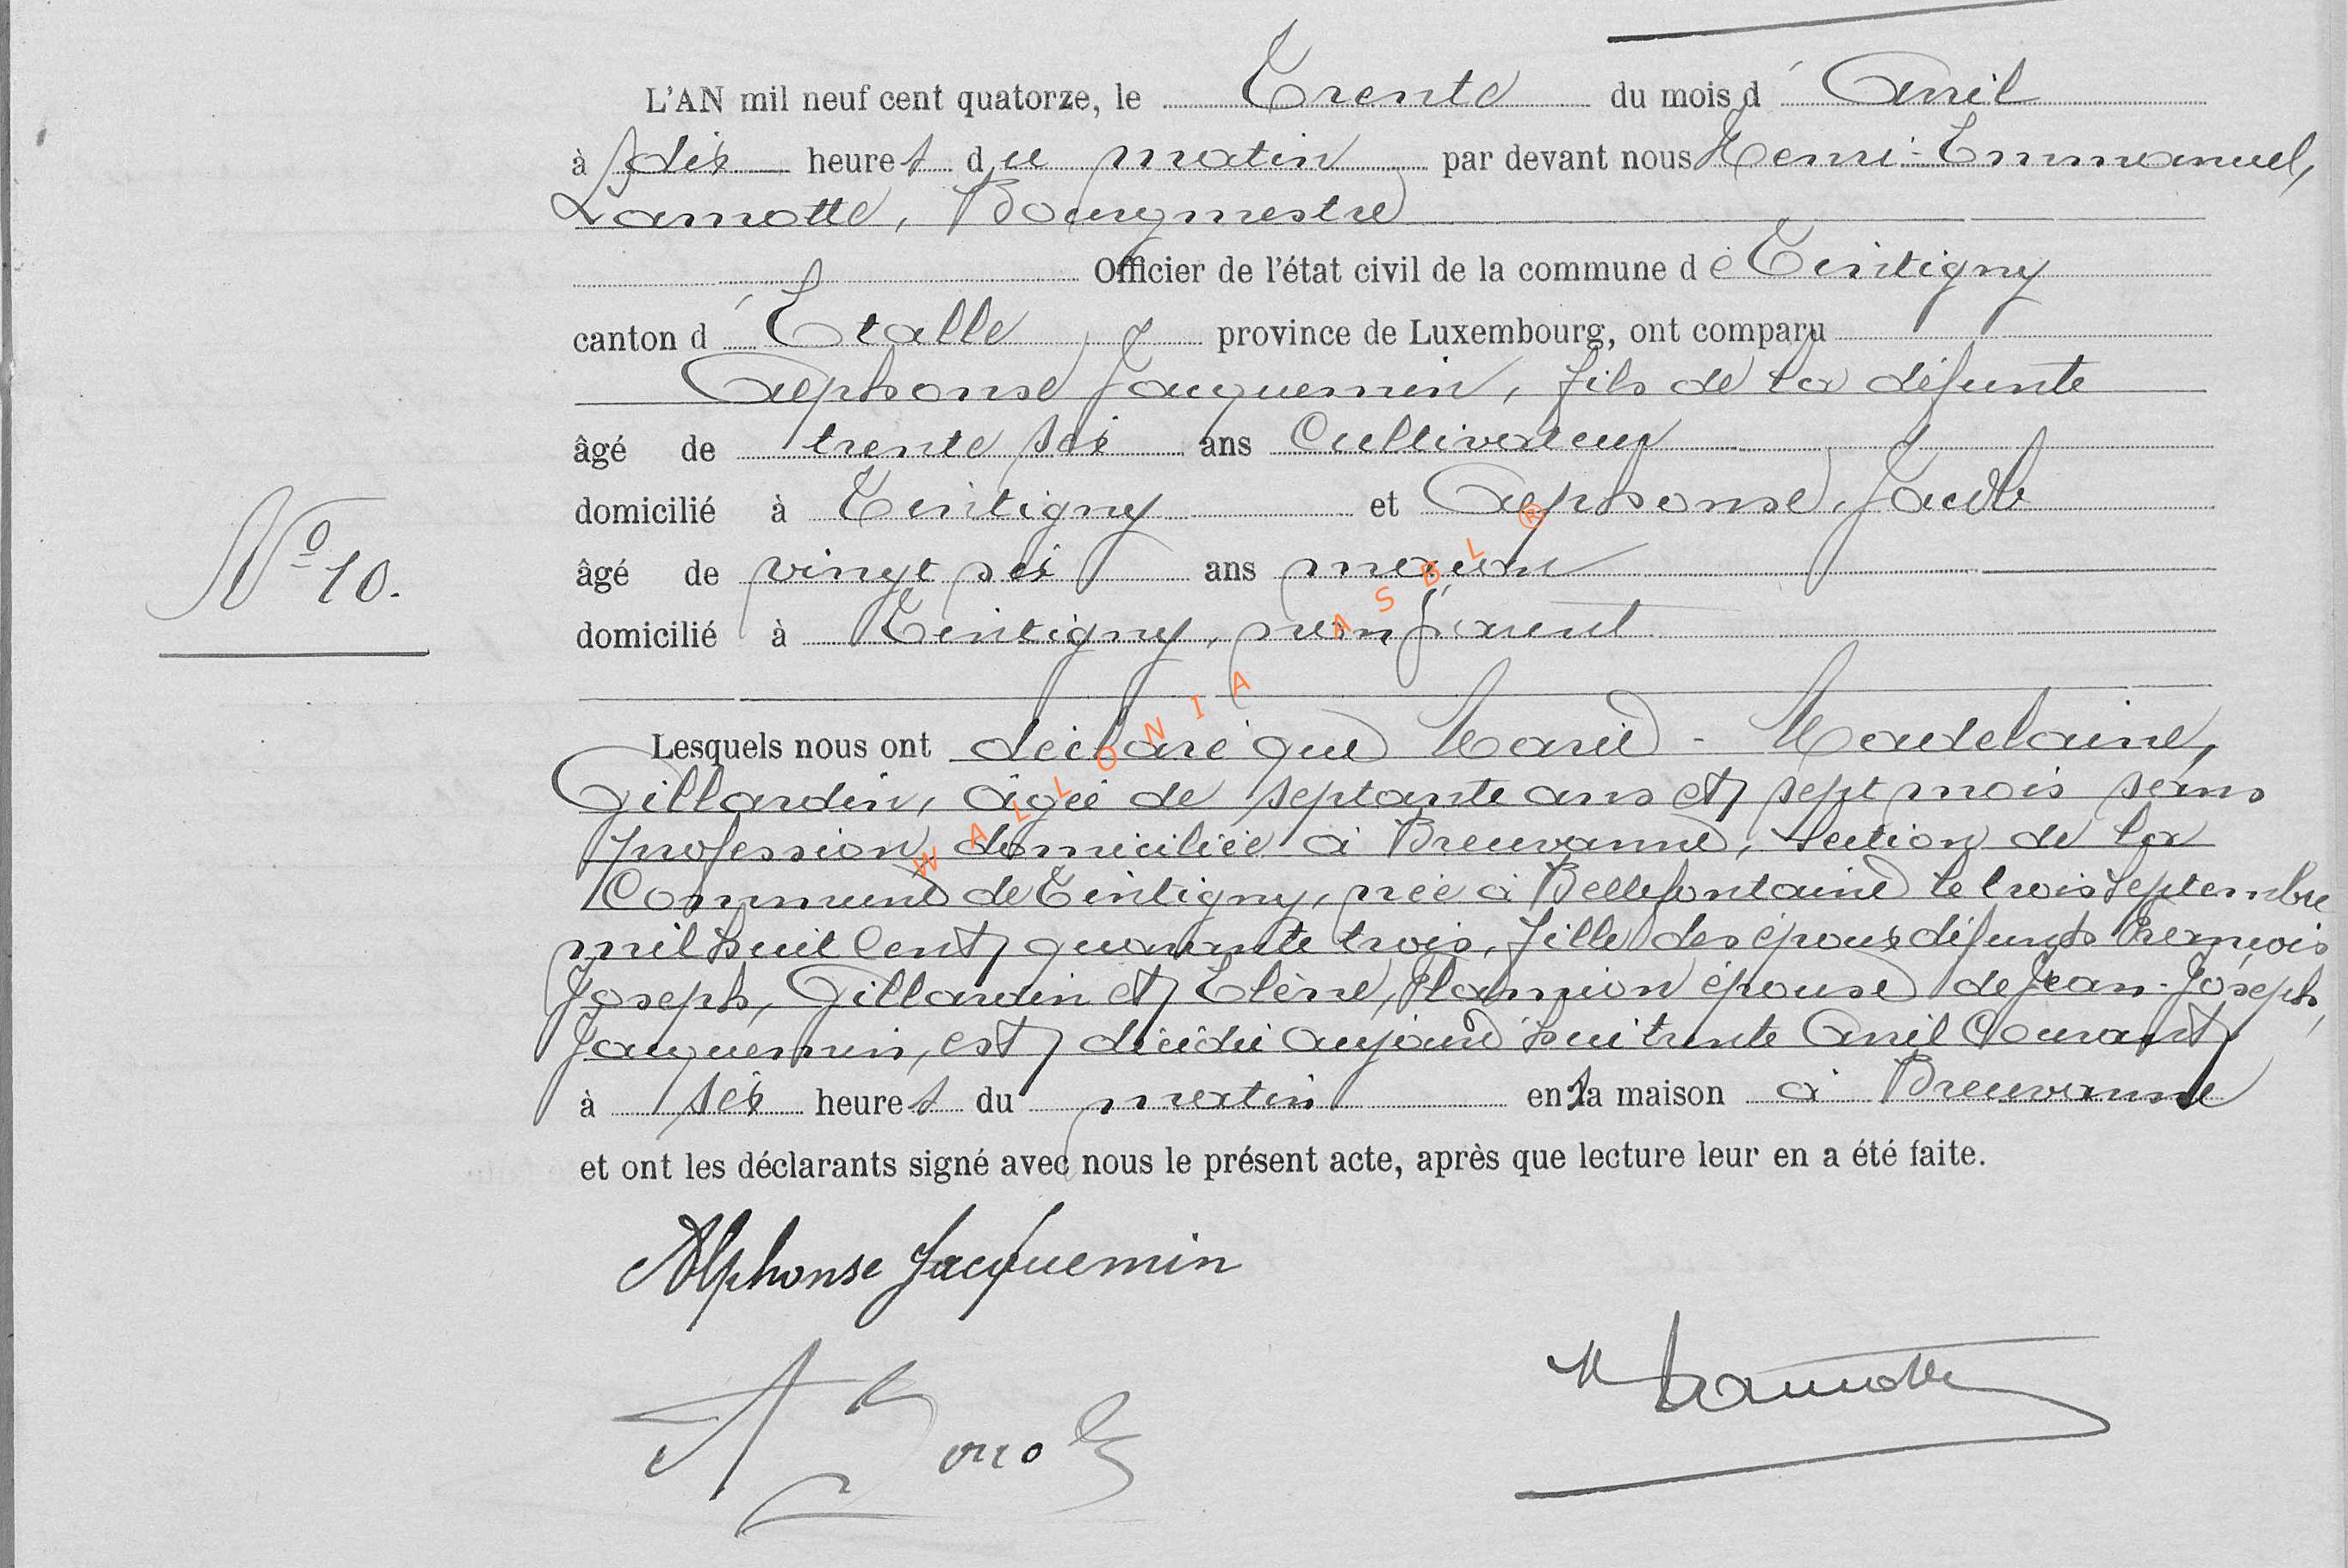 L'AN mil neuf cent quatorze, le Trente du mois d'Avril
à dix heures du matin par devant nous Henri-Emmanuel,
Lamotte, Bourgmestre
Officier de l'état civil de la commune de Tintigny
canton d'Etalle province de Luxembourg, ont comparu
Alphonse Jacquemin, fils de la défunte
âgé de trente six ans Cultivateur
domicilié à Tintigny et Alphonse, Jacob
âgé de vingt six ans
domicilié à Tintigny, non parent
N° 10.
Lesquels nous ont déclaré que Marie-Madelaine,
Gillardin, âgée de septante ans et sept mois sans
profession, domiciliée à Breuvanne, section de la
Commune de Tintigny, née à Bellefontaine le trois Septembre
mil huit Cent quarante trois, fille des époux défunts François
Joseph, Gillardin et Elène, Flamion épouse de Jean-Joseph,
Jacquemin, est décédée aujourd'hui trente Avril Courant
à six heures du matin en sa maison à Breuvanne
et ont les déclarants signé avec nous le présent acte, après que lecture leur en a été faite.
Alphonse Jacquemin
A Jacob
H Lamotte
WALLONIA ASBL ®